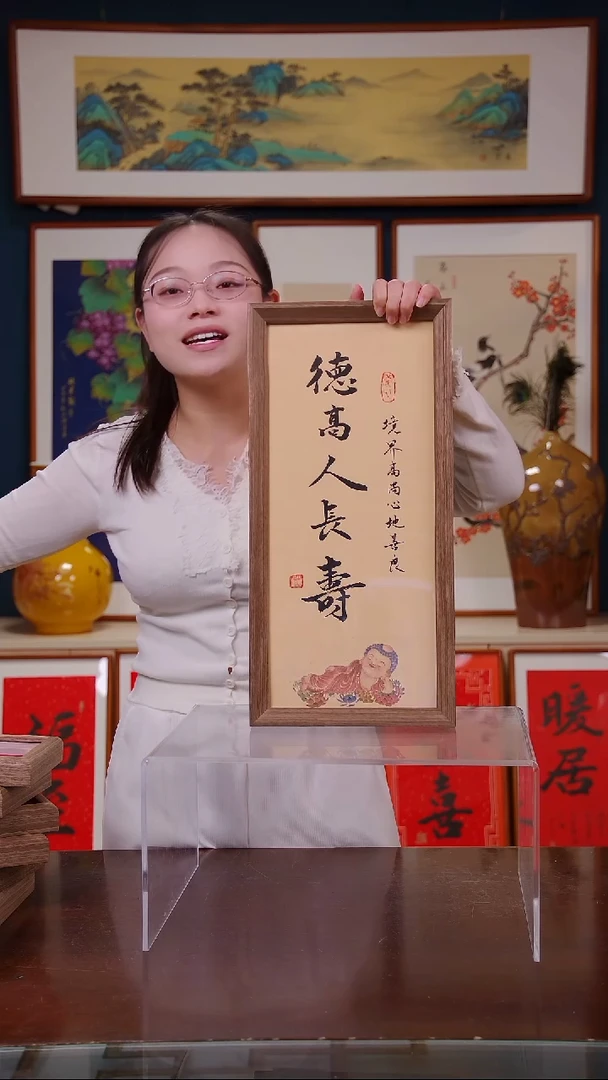 德高人長壽
境界高尚心地善良
福
喜
暖居